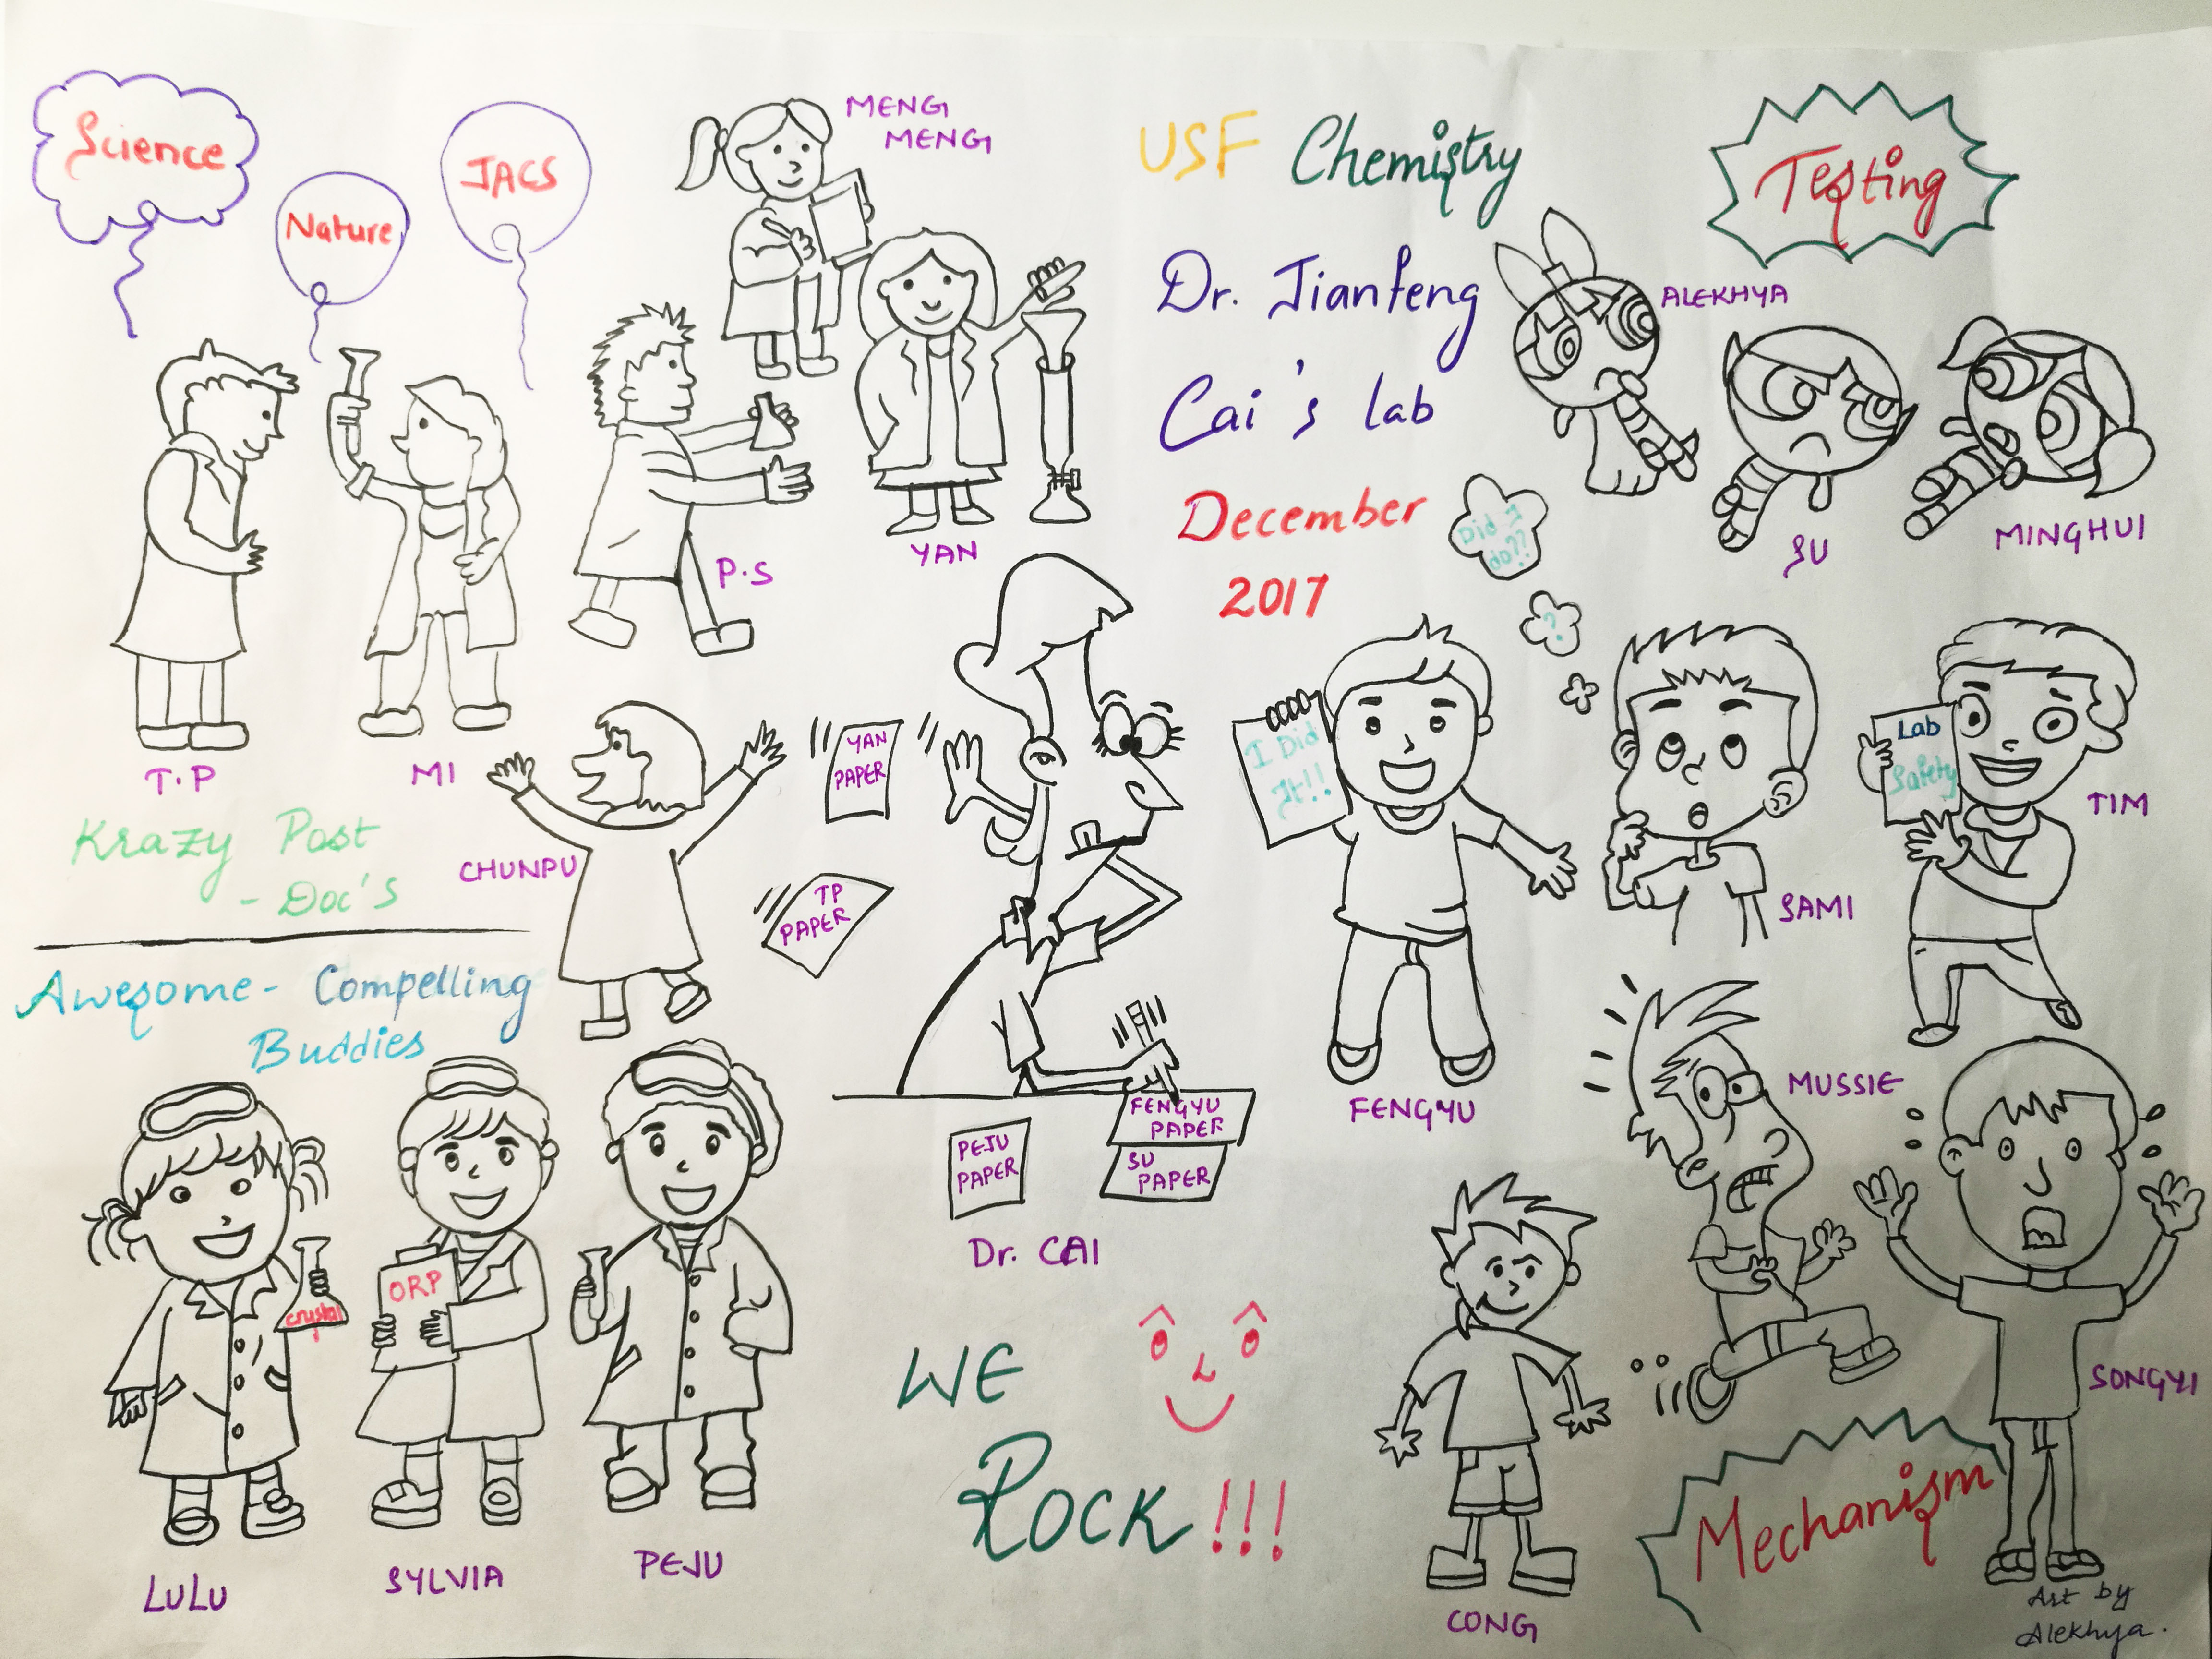 Science
Nature
JACS
MENG
MENG
USF Chemistry
Dr. Jianfeng
Cai's lab
December
2017
Testing
ALEKHYA
SU
MINGHUI
P.S
YAN
T.P
MI
Krazy Post
- Doc's
CHUNPU
YAN
PAPER
TP
PAPER
Did I
do??
?
I Did
It!!
Lab
Safety
TIM
SAMI
FENGYU
Awesome- Compelling
Buddies
FENGYU
PAPER
PEJU
PAPER
SU
PAPER
Dr. CAI
MUSSIE
SONGYI
crystal
ORP
LULU
SYLVIA
PEJU
WE
ROCK!!!
CONG
Mechanism
Art by
Alekhya.